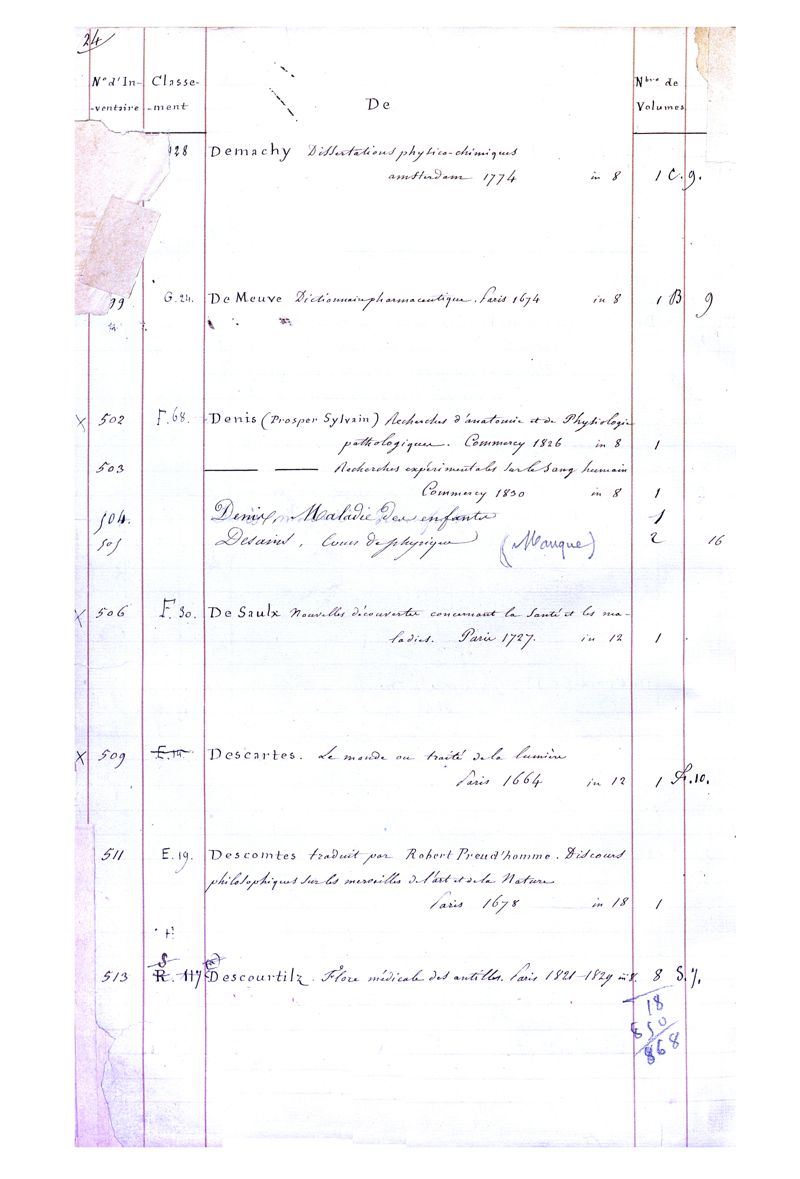 24
N° d'In- Classe- De Nbre de
-ventaire -ment Volumes
128 Demachy Dissertations physico-chimiques
amsterdam 1774 in 8 1 C. 9.
99 G. 24. De Meuve Dictionnaire pharmaceutique. Paris 1674 in 8 1 B 9
X 502 F. 68. Denis (Prosper Sylvain) Recherches d'anatomie et de Physiologie
pathologique. Commercy 1826 in 8 1
503 —— —— Recherches expérimentales sur le Sang humain
Commercy 1830 in 8 1
504. Denis, Maladie des enfants 1
505 Desains, Cours de physique (Manque) 2 16
X 506 F. 30. De Saulx Nouvelles découvertes concernant la Santé et les ma-
ladies. Paris 1727. in 12 1
X 509 E. 14. Descartes. Le monde ou traité de la lumière
Paris 1664 in 12 1 10.
511 E. 19. Descomtes traduit par Robert Preud'homme. Discours
philosophiques sur les merveilles de l'art et de la Nature
Paris 1678 in 18 1
S
513 R. 117 Descourtilz. Flore médicale des antilles. Paris 1821-1829 in 8. 8 S. 7.
18
850
868